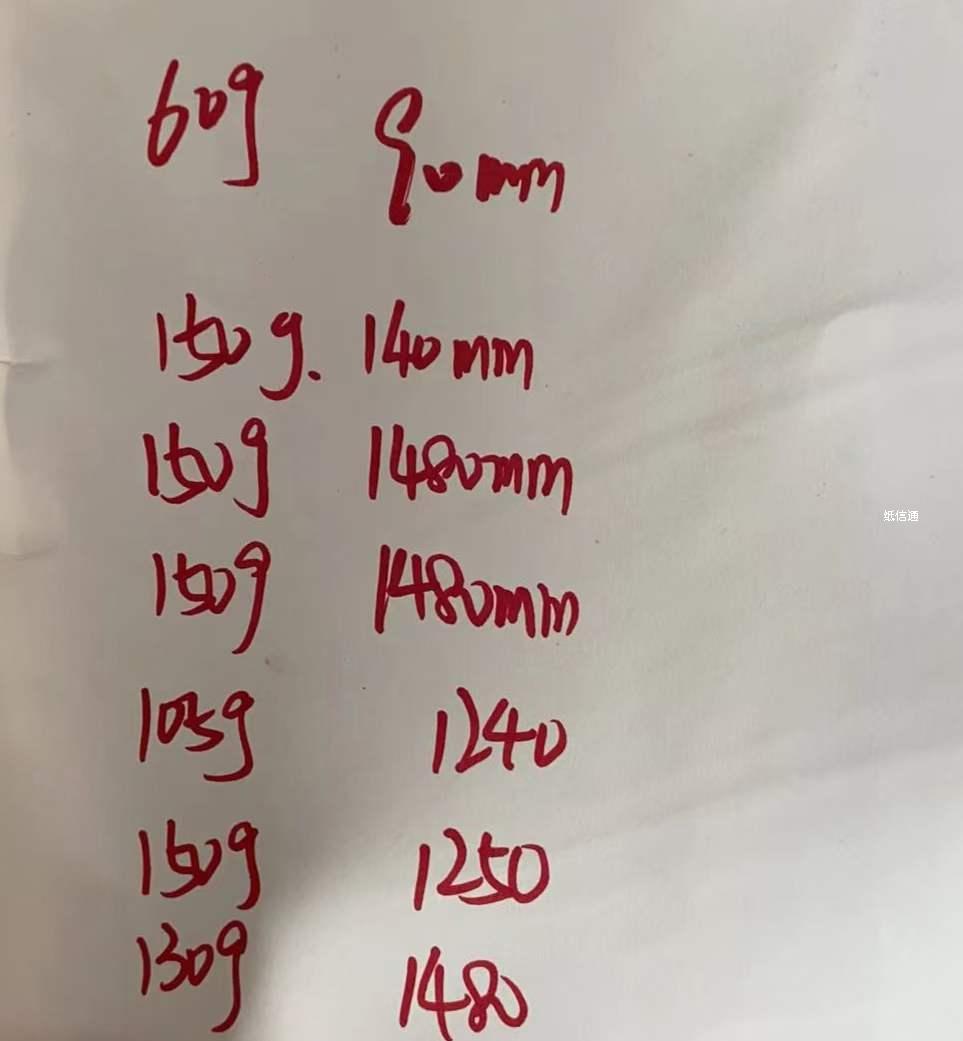 60g 90mm
150g. 140mm
150g 1480mm
纸信通
150g 1480mm
105g 1240
150g 1250
130g 1480